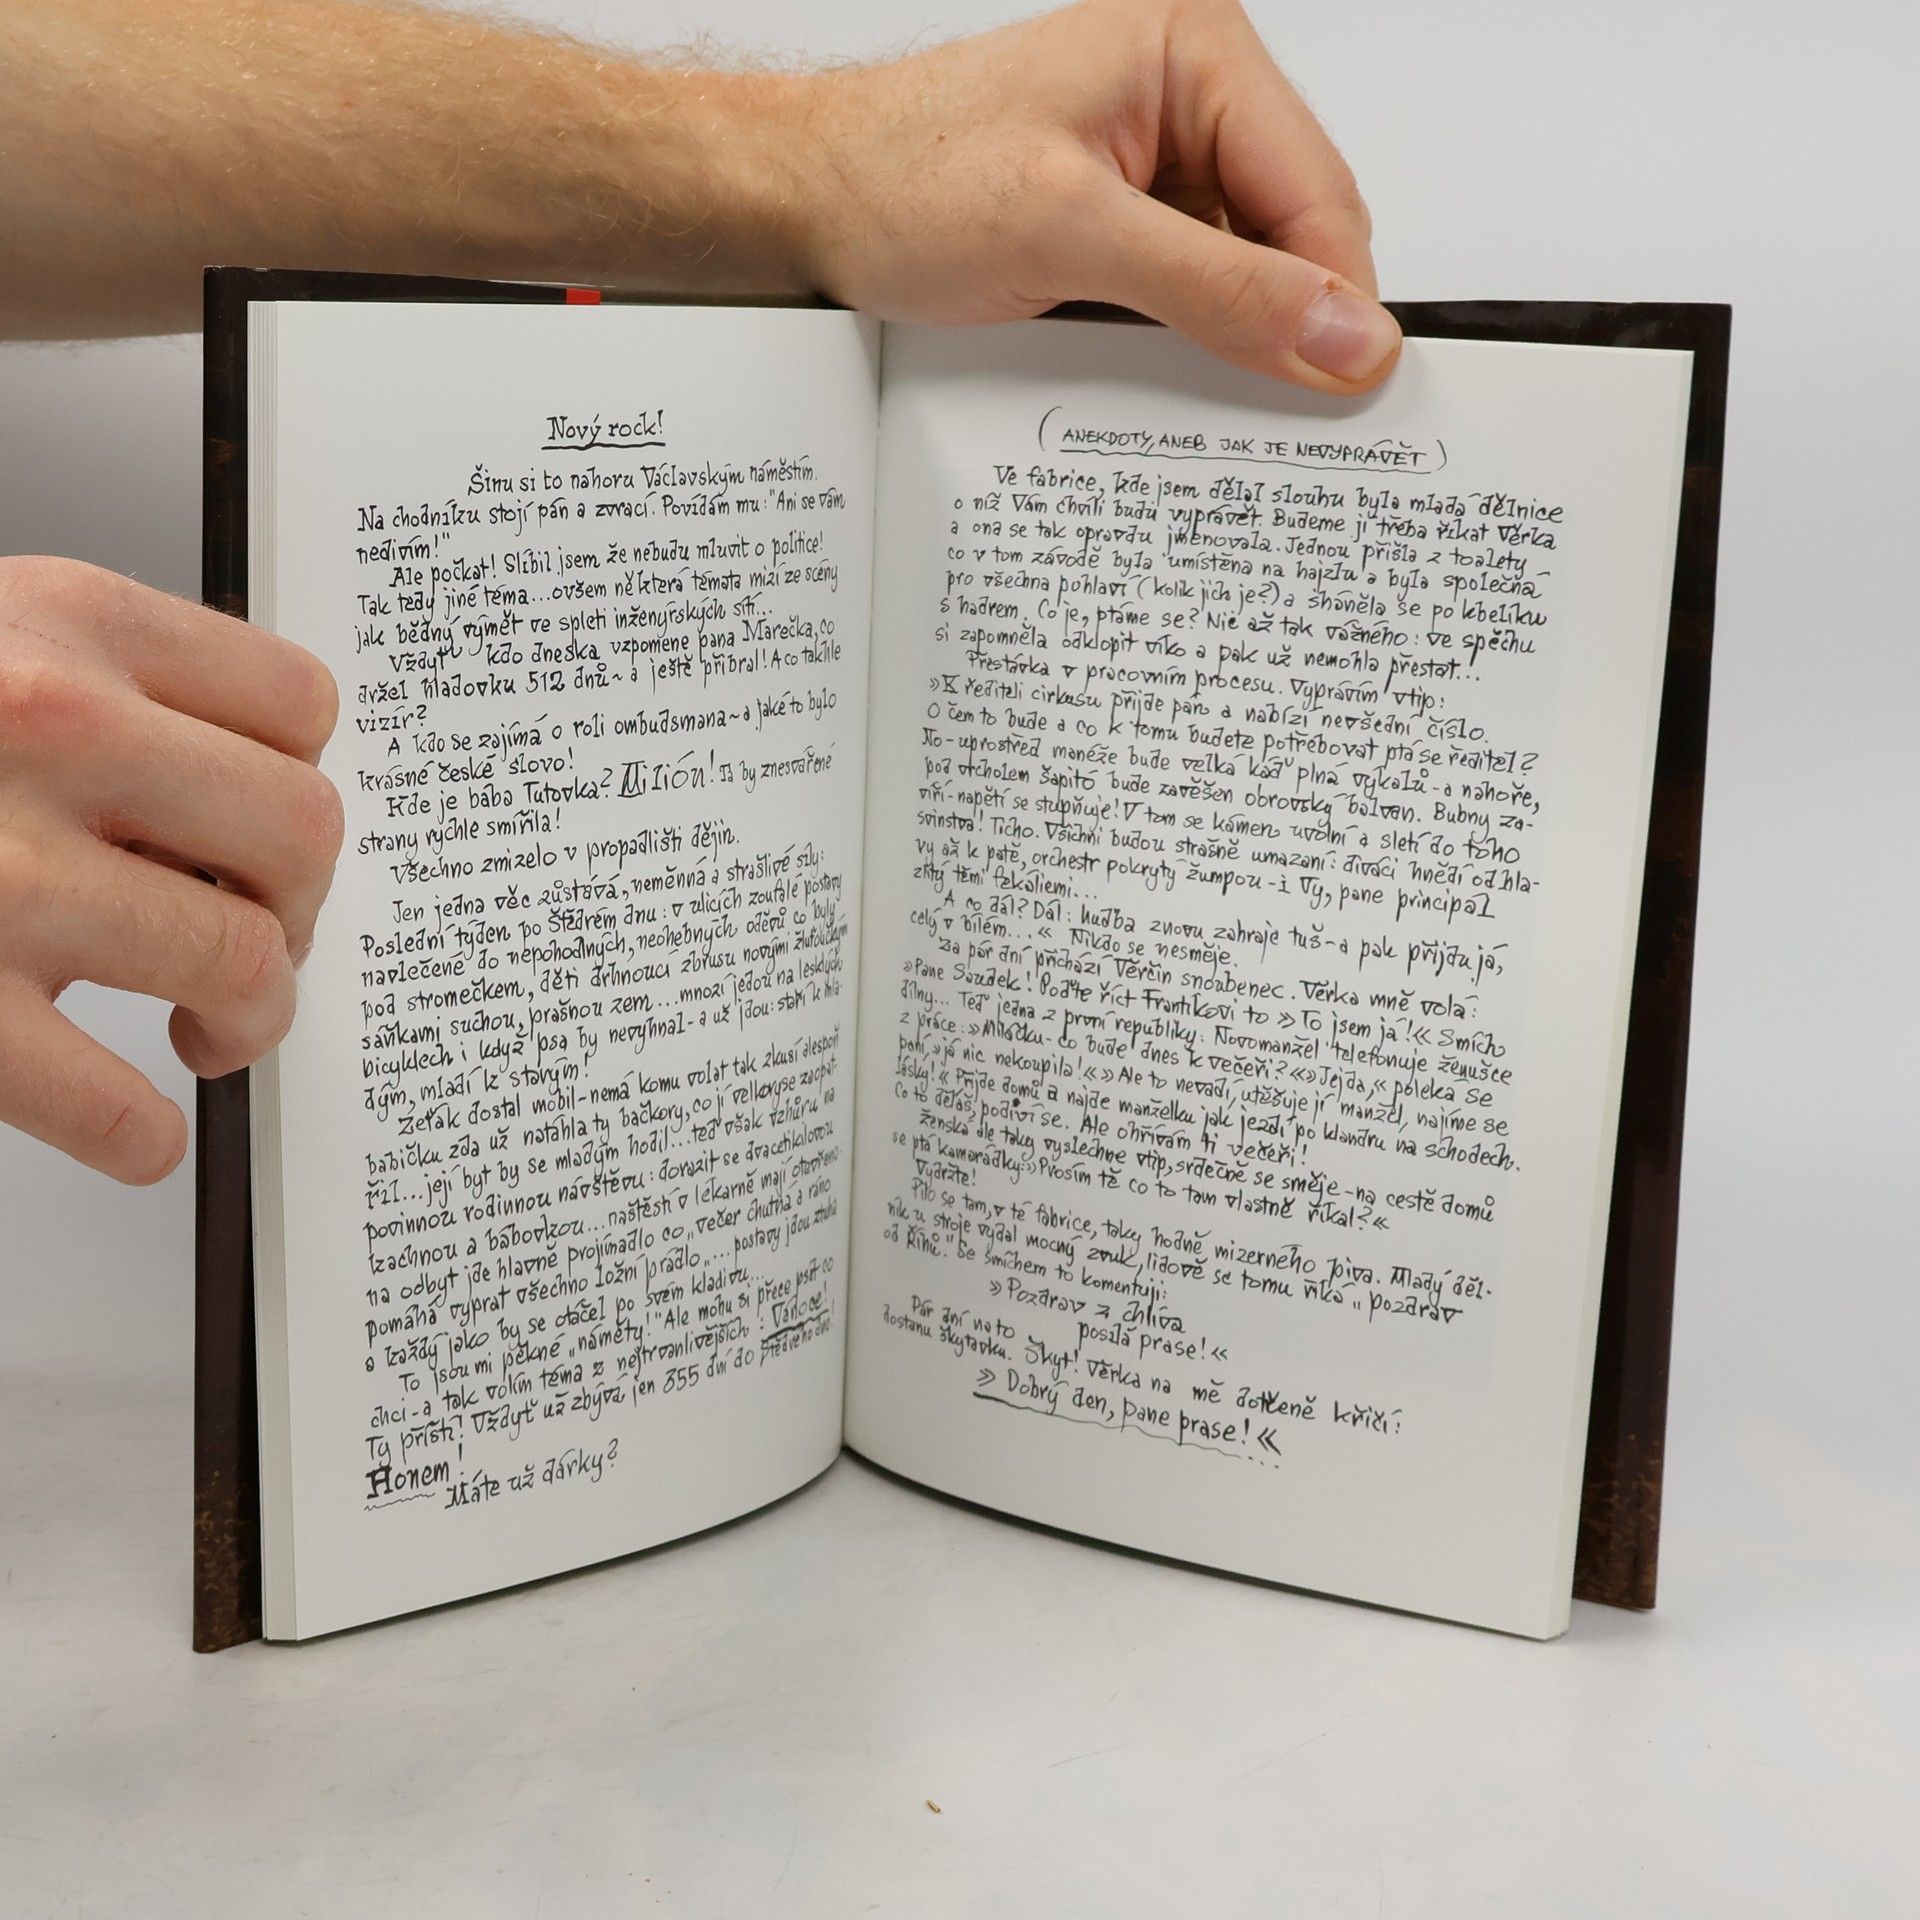 Nový rock!
Šinu si to nahoru Václavským náměstím.
Na chodníku stojí pán a zvrací. Povídám mu: "Ani se vám
nedivím!"
Ale počkat! Slíbil jsem že nebudu mluvit o politice!
Tak tedy jiné téma...ovšem některá témata mizí ze scény
jak bědný výmět ve spleti inženýrských sítí...
Vždyť kdo dneska vzpomene pana Marečka, co
držel hladovku 512 dnů~a ještě přibral! A co takhle
vizír?
A kdo se zajímá o roli ombudsmana~a jaké to bylo
krásné české slovo!
Kde je bába Tutovka? Milión! Ta by znesvářené
strany rychle smířila!
Všechno zmizelo v propadlišti dějin.
Jen jedna věc zůstává, neměnná a strašlivé síly:
Poslední týden po Štědrém dnu: v ulicích zoufalé postavy
navlečené do nepohodlných, neohebných oděvů, co byly
pod stromečkem, děti drhnoucí zbrusu novými žluťoučkými
sáňkami suchou, prašnou zem...mnozí jedou na lesklých
bicyklech i když psa by nevyhnal-a už jdou: staří k mla-
dým, mladí k starým!
Zeťák dostal mobil-nemá komu volat tak zkusí alespoň
babičku zda už natáhla ty bačkory, co jí velkoryse zaopat-
řil...její byt by se mladým hodil...teď však vzhůru na
povinnou rodinnou návštěvu: dorazit se dvacetikilovou
kachnou a bábovkou...naštěstí v lékárně mají otevřeno:
na odbyt jde hlavně projímadlo co „večer chutná a ráno
pomáhá vyprat všechno ložní prádlo„... postavy jdou ztuha
a každý jako by se otáčel po svém kladivu...
To jsou mi pěkné „náměty!" Ale mohu si přece psát co
chci-a tak volím téma z nejtrvanlivějších: Vánoce!
Ty příští! Vždyť už zbývá jen 355 dní do Štědrého dne.
Honem!
Máte už dárky?
(ANEKDOTY, ANEB JAK JE NEVYPRÁVĚT)
Ve fabrice, kde jsem dělal slouhu byla mladá dělnice
o níž Vám chvíli budu vyprávět. Budeme jí třeba říkat Věrka
a ona se tak opravdu jmenovala. Jednou přišla z toalety
co v tom závodě byla umístěna na hajzlu a byla společná
pro všechna pohlaví (kolik jich je?) a sháněla se po kbelíku
s hadrem. Co je, ptáme se? Nic až tak vážného: ve spěchu
si zapomněla odklopit víko a pak už nemohla přestat...
Přestávka v pracovním procesu. Vyprávím vtip:
»K řediteli cirkusu přijde pán a nabízí nevšední číslo.
O čem to bude a co k tomu budete potřebovat ptá se ředitel?
No-uprostřed manéže bude velká káď plná výkalů-a nahoře,
pod vrcholem šapitó bude zavěšen obrovský balvan. Bubny za-
víří-napětí se stupňuje! V tom se kámen uvolní a sletí do toho
svinstva! Ticho. Všichni budou strašně umazaní: diváci hnědí od hla-
vy až k patě, orchestr pokrytý žumpou-i Vy, pane principál
zlitý těmi fekáliemi...
A co dál? Dál: hudba znovu zahraje tuš-a pak přijdu já,
celý v bílém...« Nikdo se nesměje.
Za pár dní přichází Věrčin snoubenec. Věrka mně volá:
»Pane Saudek! Poďte říct Frantíkovi to »To jsem já!«« Smích
dílny... Teď jedna z první republiky: Novomanžel telefonuje ženušce
z práce: »Miláčku-co bude dnes k večeři?«»Jejda,« poleká se
paní,»já nic nekoupila!«»Ale to nevadí, utěšuje jí manžel, najíme se
lásky!« Přijde domů a najde manželku jak jezdí po klandru na schodech.
Co to děláš, podiví se. Ale ohřívám ti večeři!
Ženská ale taky vyslechne vtip, srdečně se směje-na cestě domů
se ptá kamarádky:»Prosím tě co to tam vlastně říkal?«
Vydržte!
Pilo se tam, v té fabrice, taky hodně mizerného piva. Mladý děl-
ník u stroje vydal mocný zvuk, lidově se tomu říká „pozdrav
od Říhů." Se smíchem to komentuji:
»Pozdrav z chlíva
posílá prase!«
Pár dní na to
dostanu škytavku. Škyt! Věrka na mě dotčeně křičí:
»Dobrý den, pane prase!«